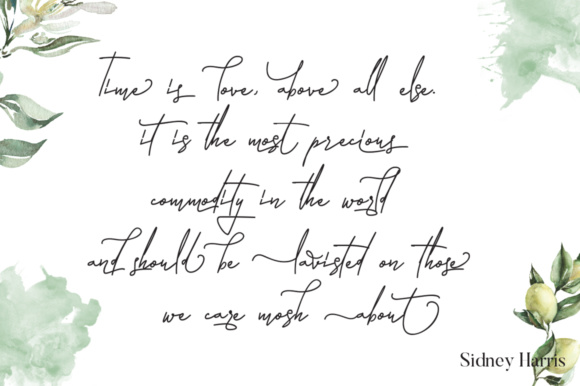 Time is love, above all else.
it is the most precious
commodity in the world
and should be lavisted on those
we care mosh about
Sidney Harris